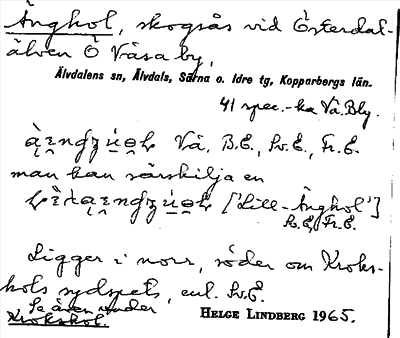 Ängkol, skogsås vid Österdal-
älven Ö Våsa by,
Älvdalens sn, Älvdals, Särna o. Idre tg, Kopparbergs län.
41 spec.-ka Vå. Bly.
Vå, B.E., Sv.E., Fr.E.
man kan särskilja en
['Lill-Ängkol']
S.E, Fr.E.
Ligger i norr, söder om Kroks-
kols sydspets, enl. Sv.E.
Se även under
Krokskol.
HELGE LINDBERG 1965.